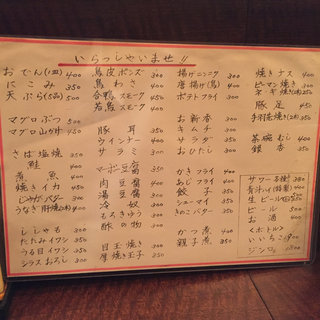 いらっしゃいませ!!
おでん(1皿) 400
にこみ 350
天ぷら(5品) 500
マグロぶつ 500
マグロ山かけ 450
さば塩焼 350
鮭 400
煮魚 450
焼きイカ 450
じゃがバター 300
うなぎ肝焼
ししゃも 300
たたみイワシ 350
うるめイワシ 350
シラスおろし 300
鳥皮ポンズ 350
鳥わさ 400
合鴨スモーク 450
若鳥スモーク 400
豚耳 400
ウインナー 400
サラミ 300
マーボ豆腐 350
肉豆腐 400
湯豆腐 300
冷奴 300
もろきゅう 300
酢の物 300
目玉焼き 300
厚焼き玉子 350
揚げニンニク 300
唐揚げ(鳥) 400
ポテトフライ 300
お新香 300
キムチ 300
サラダ 300
おひたし 300
かきフライ 400
あじフライ 400
餃子 350
シューマイ 350
きのこバター 350
かつ煮 400
親子煮 350
焼きナス 400
ピーマン焼き
ネギ焼
豚足 450
手羽塩焼
茶碗むし 400
銀杏 300
サワー各種 350
青汁ハイ
生ビール
ビール 500
お酒 400
<ボトル>
いいちこ 1900
ジンロ